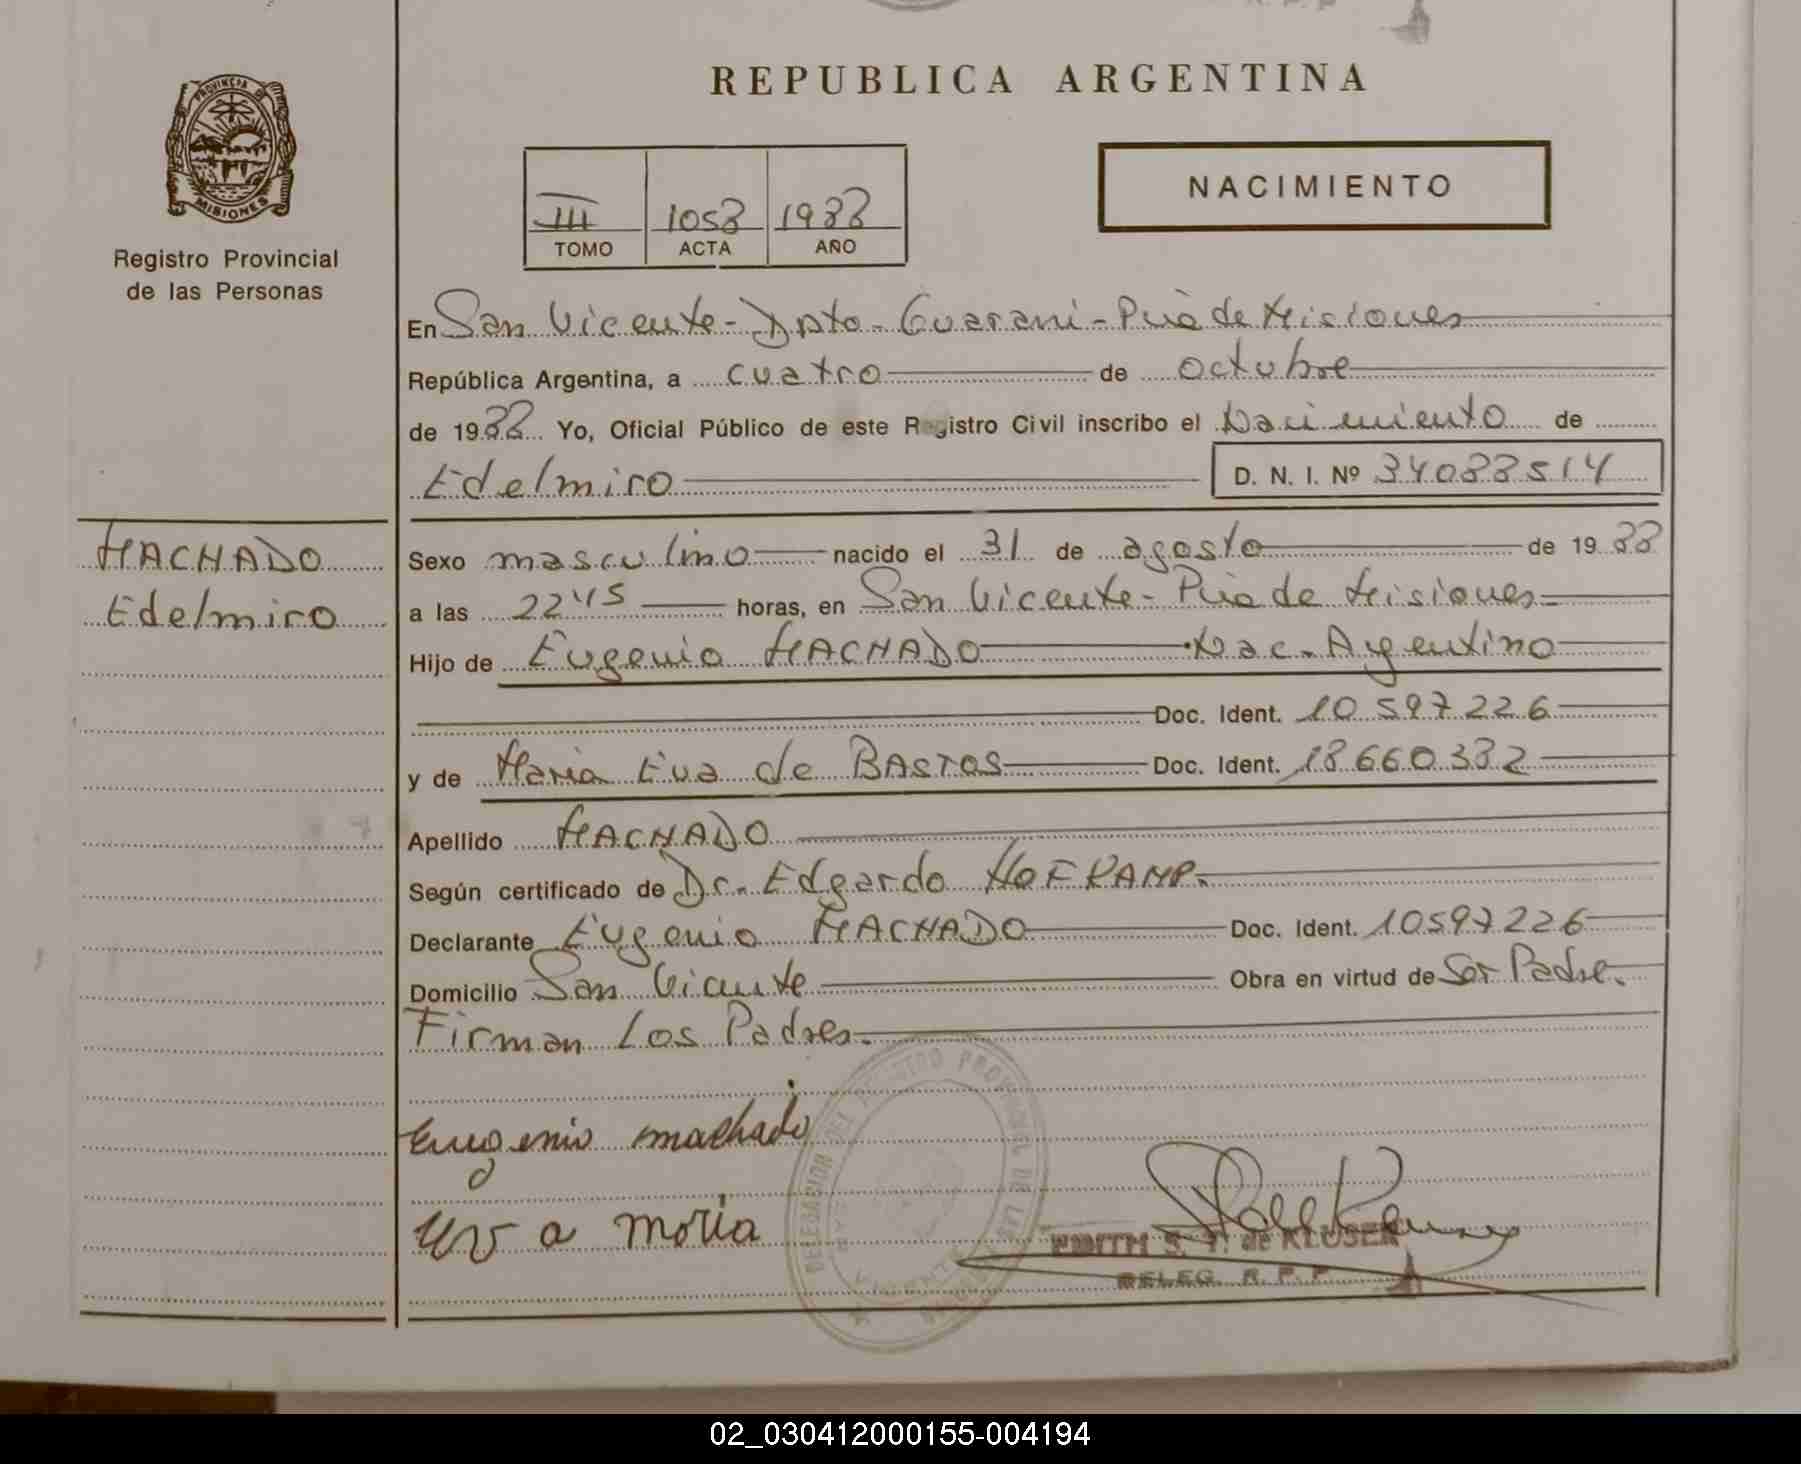 REPUBLICA ARGENTINA
PROVINCIA DE
MISIONES
Registro Provincial
de las Personas
III 1058 1988
TOMO ACTA AÑO
NACIMIENTO
En San Vicente - Dpto. Guarani - Pcia de Misiones
República Argentina, a cuatro de octubre
de 1988 Yo, Oficial Público de este Registro Civil inscribo el Nacimiento de
Edelmiro D. N. I. Nº 34088514
MACHADO
Edelmiro
Sexo masculino nacido el 31 de agosto de 1988
a las 2245 horas, en San Vicente - Pcia de Misiones
Hijo de Eugenio MACHADO Nac. Argentino
Doc. Ident. 10 597 226
y de Maria Eva de BASTOS Doc. Ident. 18 660 382
Apellido MACHADO
Según certificado de Dr. Edgardo
Declarante Eugenio MACHADO Doc. Ident. 10597226
Domicilio San Vicente Obra en virtud de Ser Padre.
Firman Los Padres.
Eugenio machado
Eva moria
DELEGACION DEL REGISTRO PROVINCIAL DE LAS PERSONAS
VICENTE
EDITH S. T. de KLUSER
DELEG. R. P. P.
02_030412000155-004194